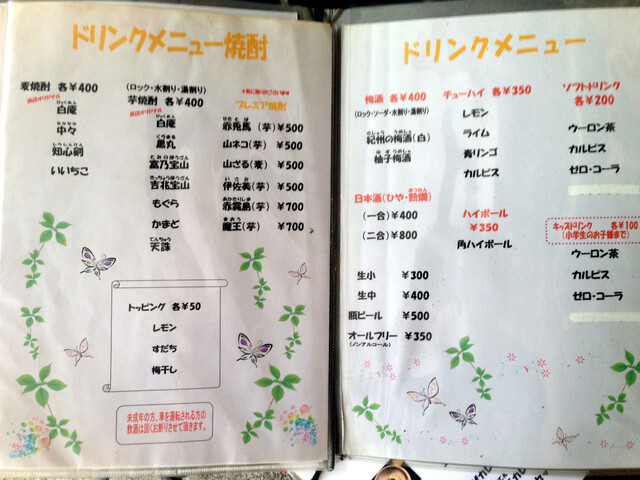 ドリンクメニュー焼酎
麦焼酎 各¥400
当店オリジナル
白庵
中々
知心剣
いいちこ
(ロック・水割り・湯割り)
芋焼酎 各¥400
当店オリジナル
白庵
黒丸
富乃宝山
吉兆宝山
もぐら
かまど
天誅
プレミア焼酎
赤兎馬(芋) ¥500
山ネコ(芋) ¥500
山ざる(麦) ¥500
伊佐美(芋) ¥500
赤霧島(芋) ¥700
魔王(芋) ¥700
トッピング 各¥50
レモン
すだち
梅干し
未成年の方、車を運転される方の
飲酒は固くお断りさせて頂きます。
ドリンクメニュー
梅酒 各¥400
(ロック・ソーダ・水割り・湯割り)
紀州の梅酒(白)
柚子梅酒
チューハイ 各¥350
レモン
ライム
青リンゴ
カルピス
ソフトドリンク
各¥200
ウーロン茶
カルピス
ゼロ・コーラ
日本酒(ひや・熱燗)
(一合)¥400
(二合)¥800
ハイボール
¥350
角ハイボール
キッズドリンク 各¥100
(小学生のお子様まで)
ウーロン茶
カルピス
ゼロ・コーラ
生小 ¥300
生中 ¥400
瓶ビール ¥500
オールフリー ¥350
(ノンアルコール)